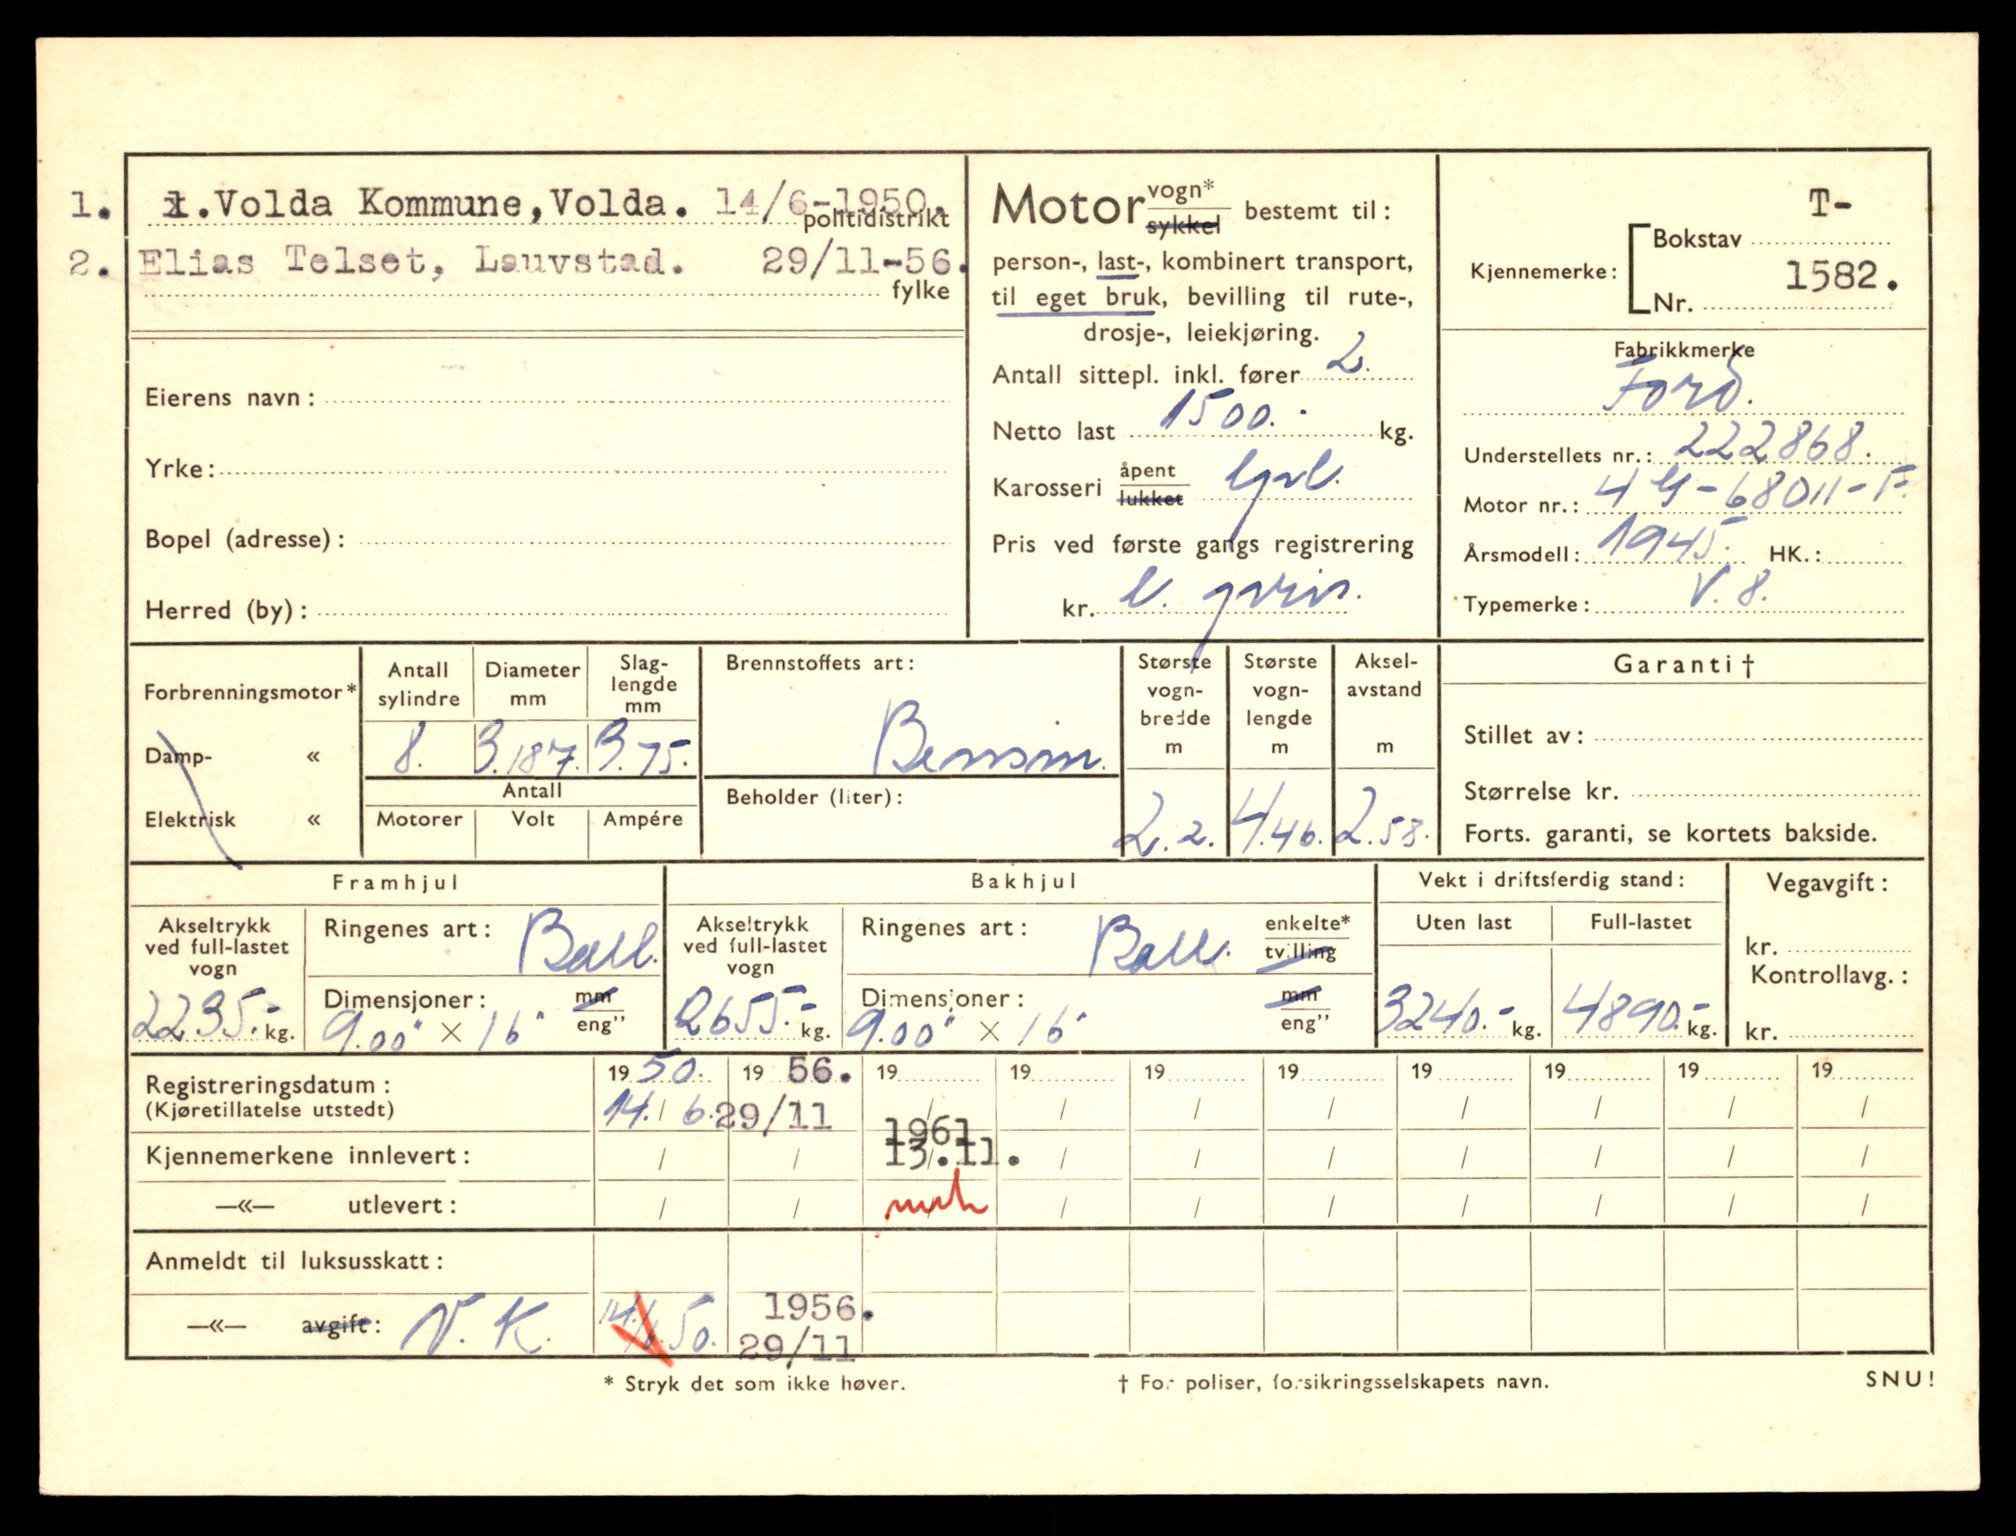 1. 1.Volda Kommune,Volda. 14/6-1950.
politidistrikt
2. Elias Telset, Lauvstad. 29/11-56.
fylke
Eierens navn:
Yrke:
Bopel (adresse):
Herred (by):
Motor vogn* sykkel bestemt til:
person-, last-, kombinert transport,
til eget bruk, bevilling til rute-,
drosje-, leiekjøring.
Antall sittepl. inkl. fører 2.
Netto last 1500.- kg.
Karosseri åpent lukket
Pris ved første gangs registrering
kr.
T-
Kjennemerke: Bokstav
1582.
Nr.
Fabrikkmerke
Ford.
Understellets nr.: 222868.
Motor nr.: 4 G-68011-F.
Årsmodell: 1945. HK.:
Typemerke: V.8.
Forbrenningsmotor*
Damp- «
Elektrisk «
Antall sylindre
Diameter mm
Slag-lengde mm
8. 3.187. 3.75.
Antall
Motorer Volt Ampére
Brennstoffets art:
Bensin.
Beholder (liter):
Største vogn-bredde m
Største vogn-lengde m
Aksel-avstand m
2.2. 4.46. 2.58.
Garanti †
Stillet av:
Størrelse kr.
Forts. garanti, se kortets bakside.
Framhjul
Akseltrykk ved full-lastet vogn
2235.- kg.
Ringenes art: Ball.
Dimensjoner: mm eng"
9.00" × 16"
Bakhjul
Akseltrykk ved full-lastet vogn
2655.- kg.
Ringenes art: Ball. enkelte* tvilling
Dimensjoner: mm eng"
9.00" × 16"
Vekt i driftsferdig stand:
Uten last Full-lastet
3240.- kg. 4890.- kg.
Vegavgift:
kr.
Kontrollavg.:
kr.
Registreringsdatum: 1950. 1956. 19 19 19 19 19 19 19 19
(Kjøretillatelse utstedt) 14./6. 29/11 / / / / / / / /
1961
Kjennemerkene innlevert: / / 13.11. / / / / / / /
—«— utlevert: / / / / / / / / / /
Anmeldt til luksusskatt:
—«— avgift: V.K. 14./6.50. 1956.
29/11
* Stryk det som ikke høver.
† For poliser, forsikringsselskapets navn.
SNU!